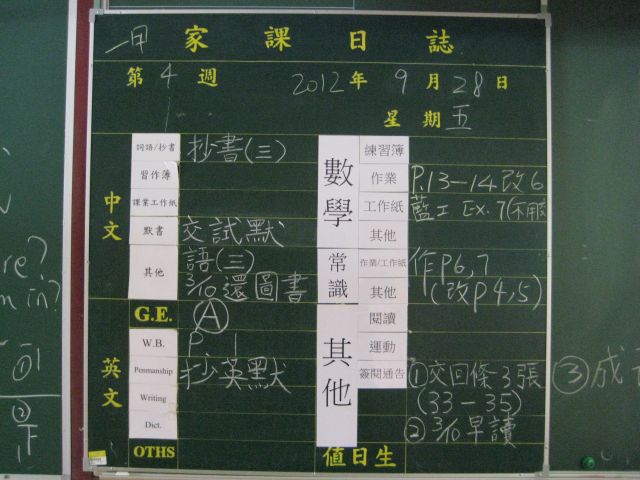 一甲 家課日誌
第4週 2012年9月28日
星期五
中文
詞語/抄書 抄書(三)
習作簿
課業工作紙
默書 交試默
其他 語(三)
3/10還圖書
G.E. Ⓐ
英文
W.B. P. 1
Penmanship 抄英默
Writing
Dict.
OTHS
數學
練習簿
作業 P.13-14改6
工作紙 藍工 Ex.7
其他
常識
作業/工作紙 作P6,7
其他 (改P4,5)
其他
閱讀
運動
簽閱通告 ①交回條3張
(33-35)
②3/10早讀
值日生
③成
re?
in?
①
②